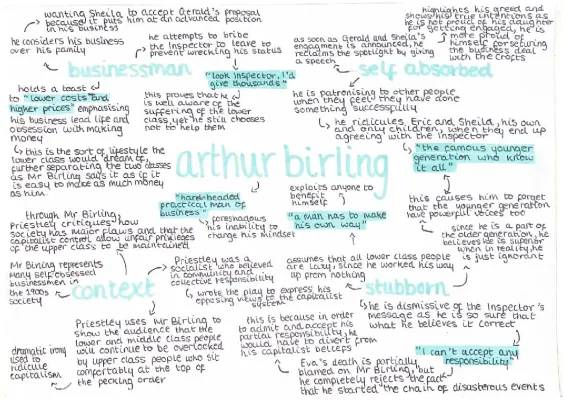 wanting Sheila to accept Gerald's proposal
because it puts him at an advanced position
in his business
he considers his business
over his family
he attempts to bribe
the Inspector to leave to
prevent wrecking his status
businessman
"look inspector, I'd
give thousands"
holds a toast
to "lower costs and
higher prices" emphasising
his business lead life and
obsession with making
money
this proves that he is
well aware of the
suffering of the lower
class, yet he still chooses
not to help them
this is the sort of lifestyle the
lower class would dream of,
further separating the two classes
as Mr Birling says it as if it
is easy to make as much money
as him.
highlights his greed and
shows his true intentions as
he is not proud of his daughter
for getting engaged, he is
more proud of
himself for securing
the business deal
with the Crofts
as soon as Gerald and Sheila's
engagement is announced, he
reclaims the spotlight by giving
a speech
self absorbed
he is patronising to other people
when they feel they have done
something successfully
he ridicules Eric and Sheila, his own
and only children, when they end up
agreeing with the Inspector
"the famous younger
generation who know
it all"
this causes him to forget
that the younger generation
have powerful voices too
since he is a part
of the older generation, he
believes he is superior
when in reality, he
is just ignorant
arthur birling
"hard-headed
practical man of
business"
foreshadows
his inability to
change his mindset
exploits anyone to
benefit
himself
"a man has to make
his own way"
assumes that all lower class people
are lazy, since he worked his way
up from nothing
through Mr Birling,
Priestley critiques how
society has major flaws and that the
capitalist control allow unfair privileges
of the upper class to be maintained
Mr Birling represents
many self obsessed
businessmen in
the 1900s
society
context
Priestley was a
socialist who believed
in community and
collective responsibility
wrote the play to express his
opposing views to the capitalist
system
Priestley uses Mr Birling to
show the audience that the
lower and middle class people
will continue to be overlooked
by upper class people who sit
comfortably at the top of
the pecking order
dramatic irony
used to
ridicule
capitalism
stubborn
he is dismissive of the Inspector's
message as he is so sure that
what he believes it correct
"I can't accept any
responsibility"
this is because in order
to admit and accept his
partial responsibility, he
would have to divert from
his capitalist beliefs
Eva's death is partially
blamed on Mr Birling, but
he completely rejects the fact
that he started the chain of disasterous events